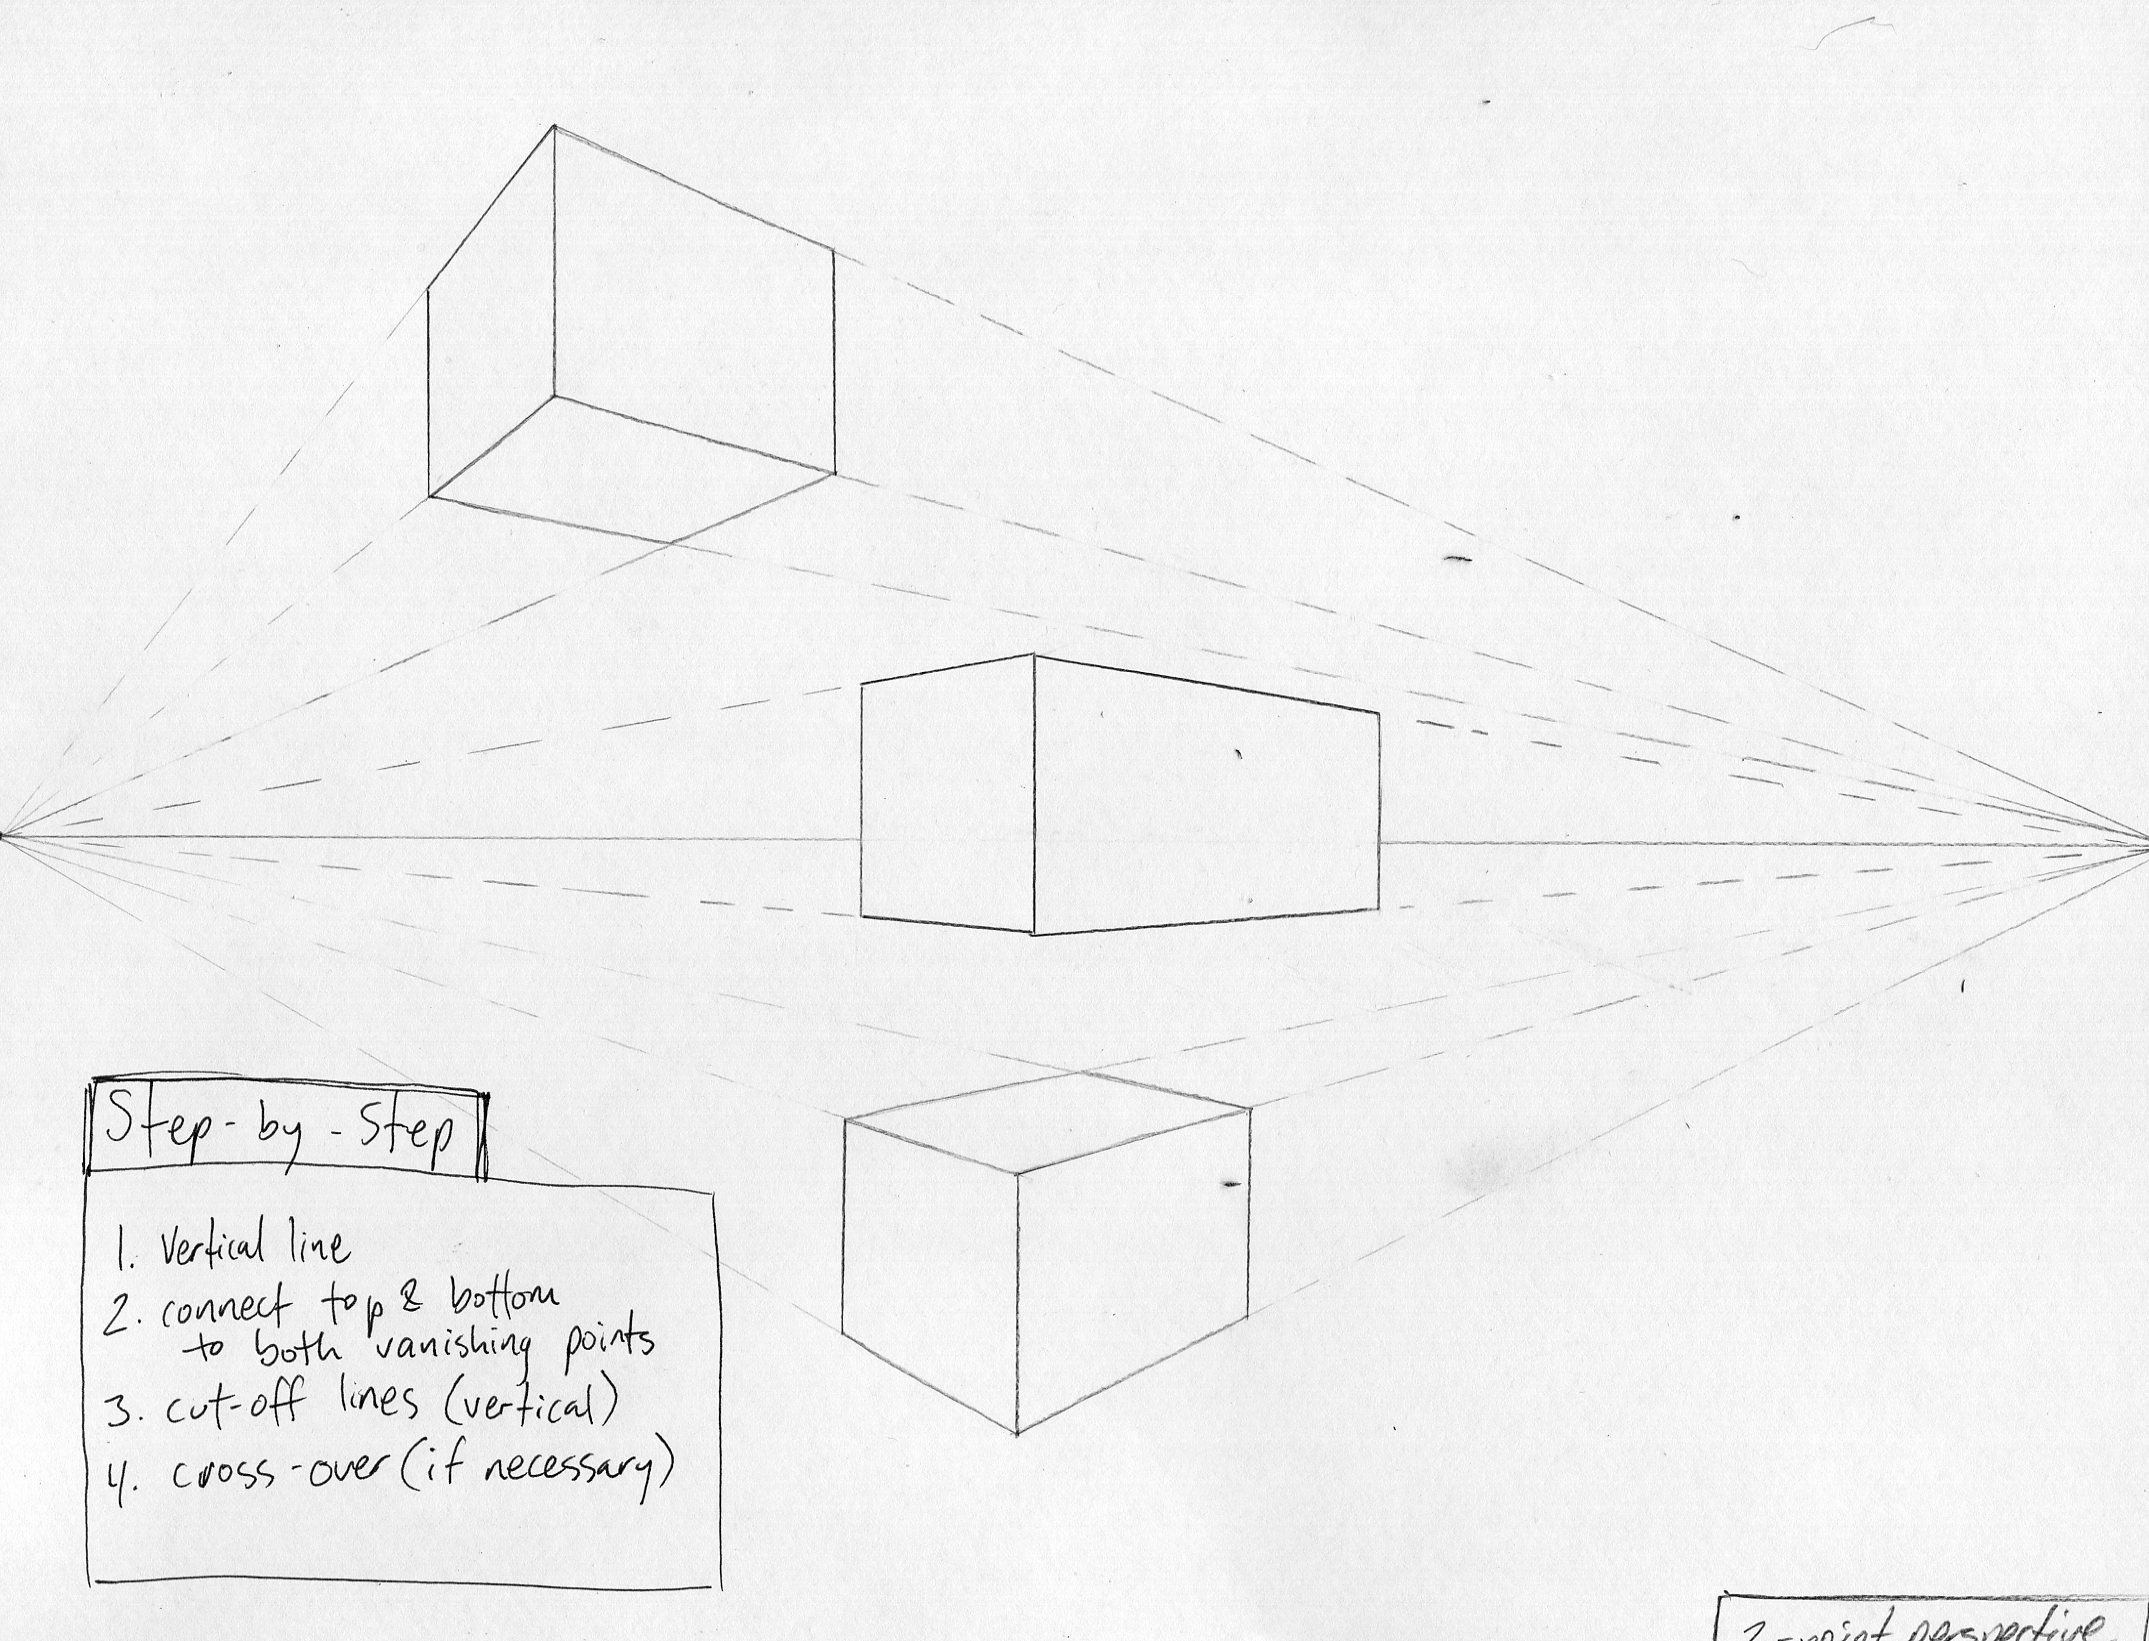 Step-by-Step
1. Vertical line
2. connect top & bottom
to both vanishing points
3. cut-off lines (vertical)
4. cross-over (if necessary)
2-point perspective